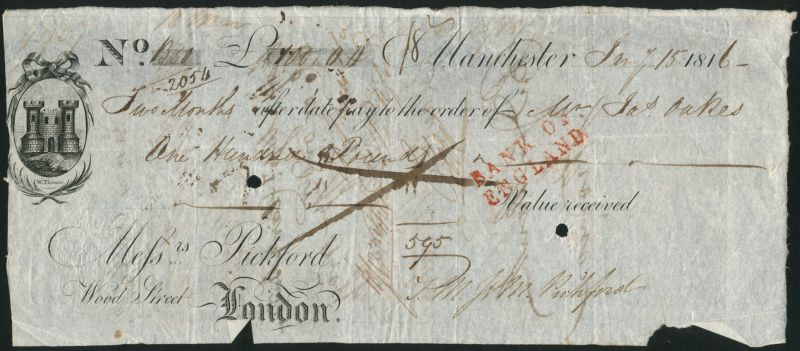 No. 1350 £ 100,,0,,0 18 Manchester Jany. 15 1816
2054
Two Months after date pay to the order of Mr. Jas. Oakes
One Hundred Pounds
BANK OF
ENGLAND
Value received
Messrs Pickford
595
Wood Street London.
T. M. & M. Pickford